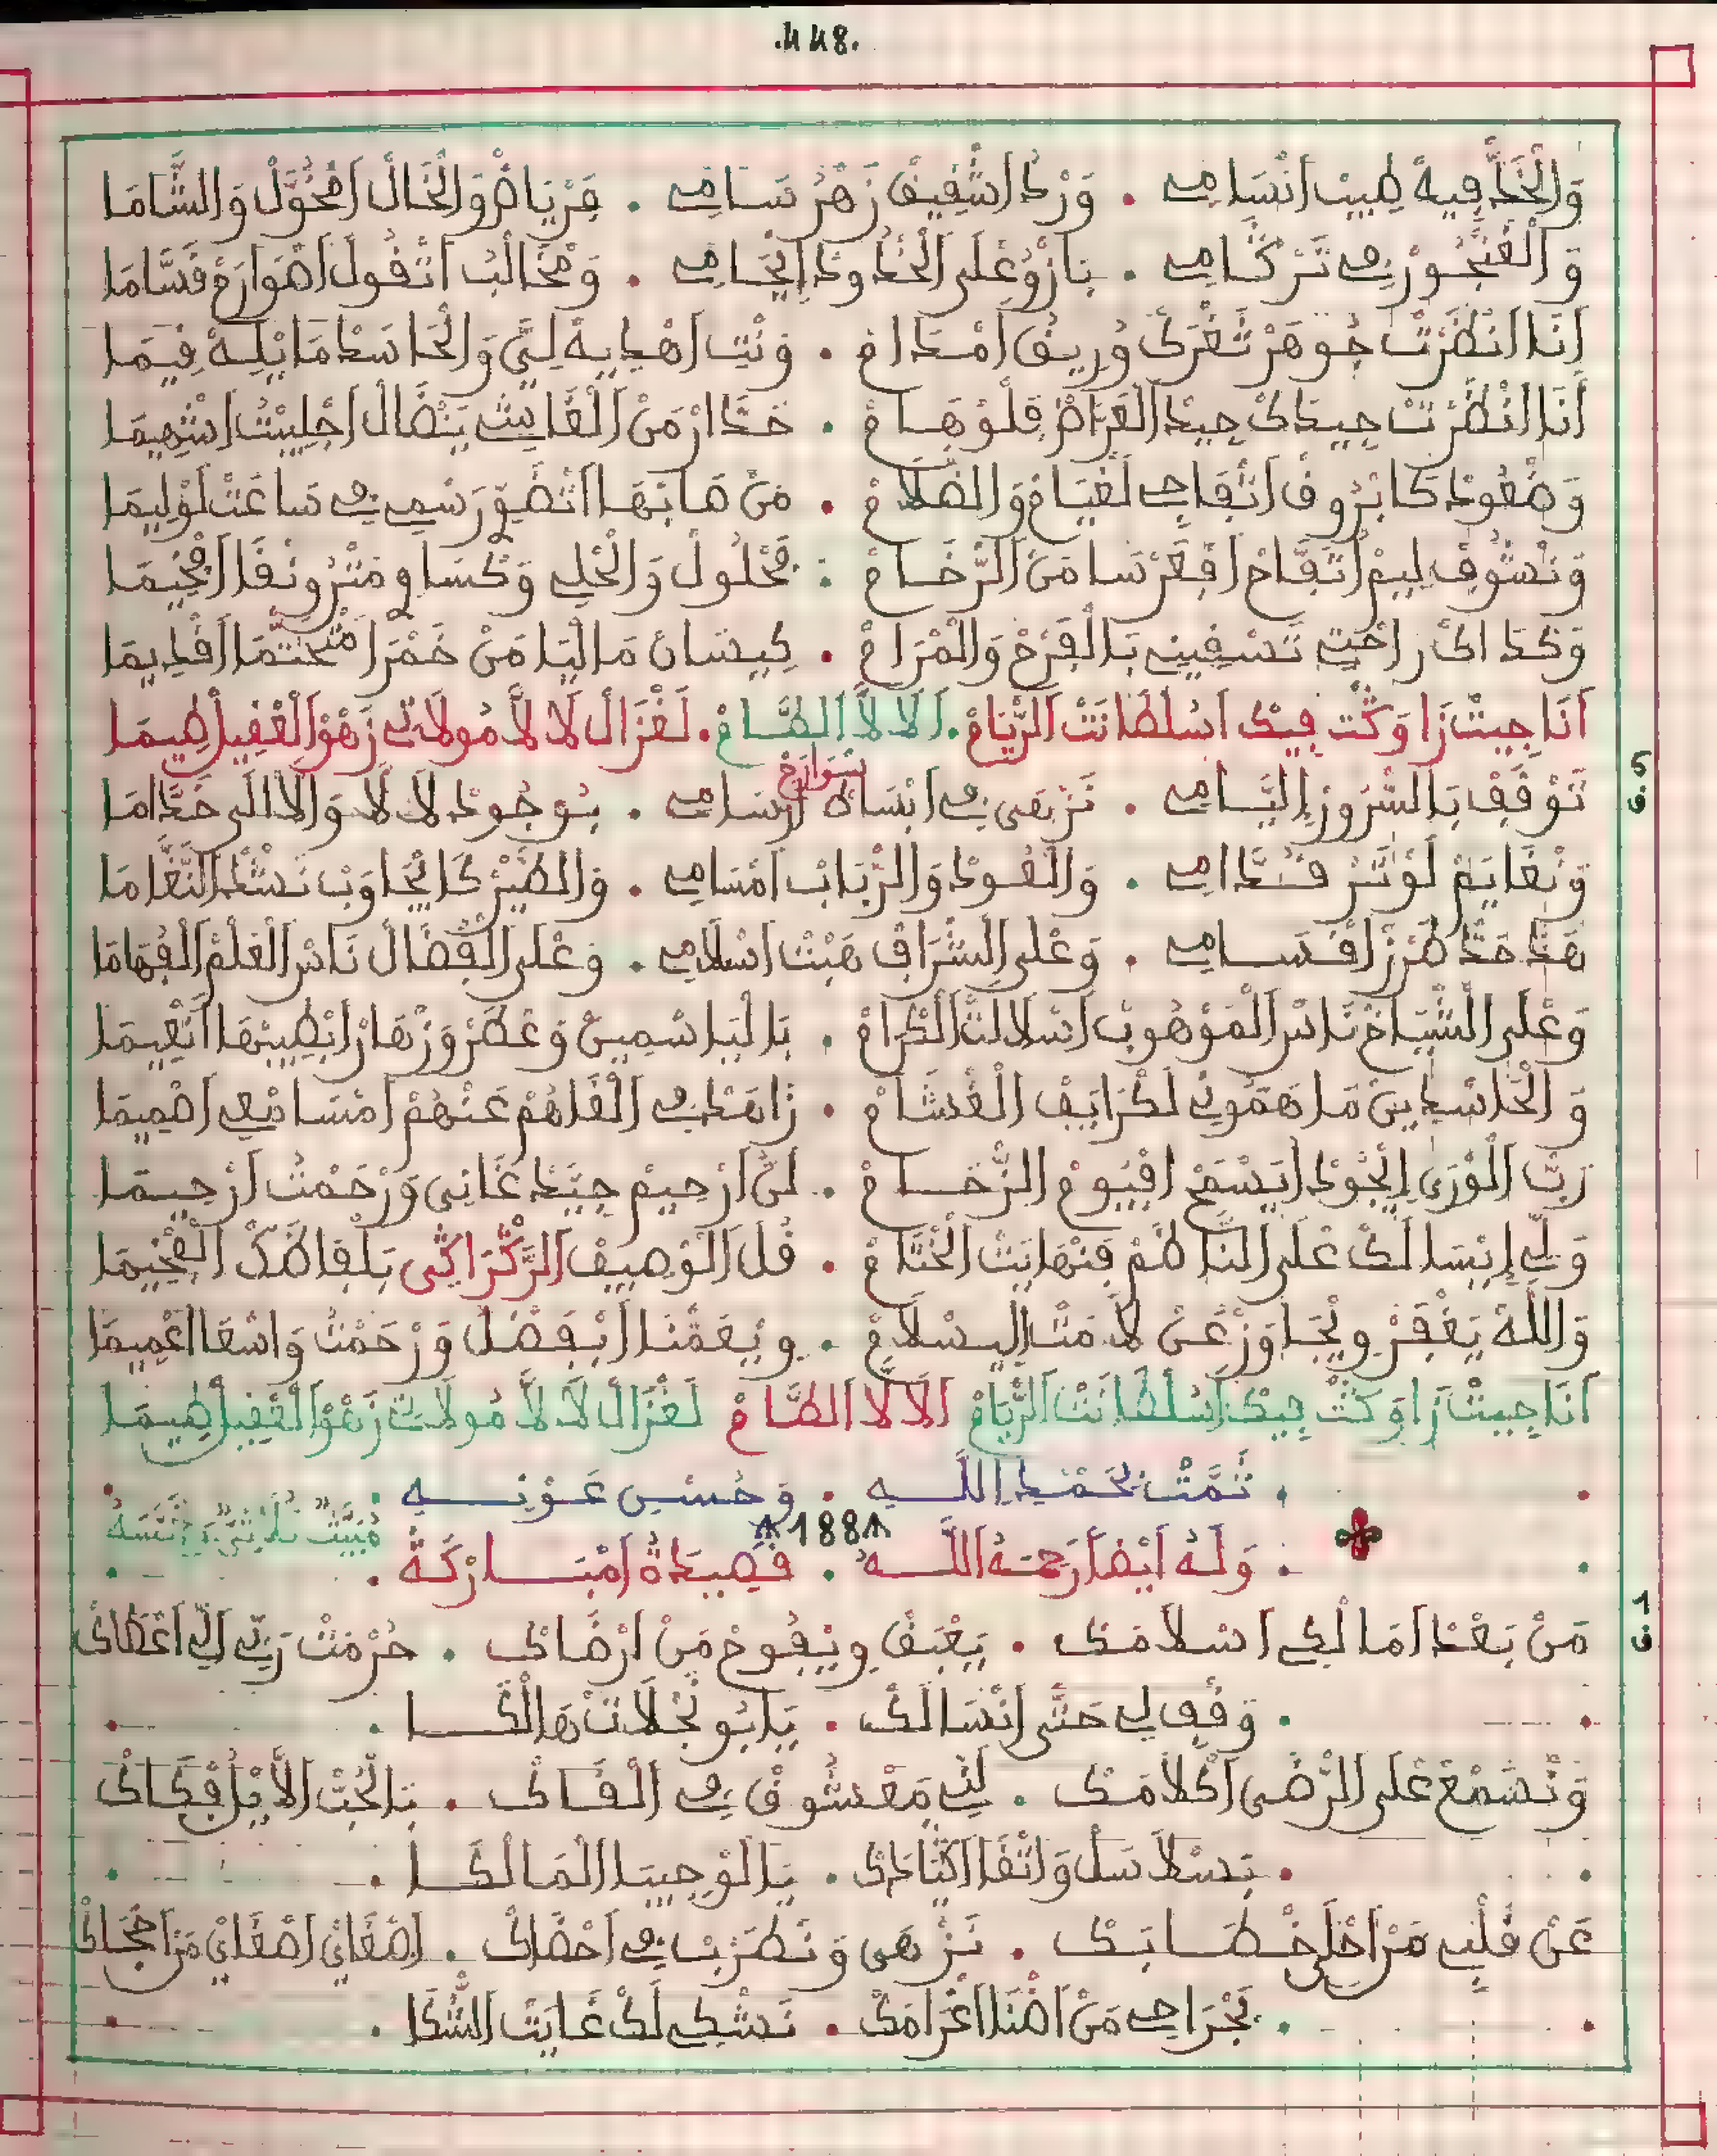 .448.
وَالْخَدّْ فِيهْ طِيبْ انْسَامِي . وَرْدْ اشْقِيقْ زَهْرْ سَامِي . فَرْيَاضْ وَالْخَالْ امْخَوَّلْ وَالشَّامَا
وَالْغُنْجُورْ فِي تَرْكَامِي . بَازْ وُعْلَى الْخْدُودْ إِيْحَامِي . وَمْخَالَبْ اتْقُولْ اصْوَارَمْ قَسَّامَا
أَنَا انْظَرْتْ جُوهَرْ ثَغْرَكْ وُرِيقْ امْدَامْ . وَنْتِ اهْدِيهْ لِيَّ وَالْحَاسَدْ مَا يْلِيهْ فِيمَا
أَنَا انْظَرْتْ جِيدَكْ جِيدْ الغْزَالْ فَلُوهَامْ . حَدَّارْ مَنْ الْقَانِيتْ يَنْضَالْ اجْلِيبْتْ اشْهِيمَا
وَضْعُودْ كَابْرُوقْ اتْفَاجِي لَغْيَامْ وَالضْلَامْ . مَنْ صَابْهَا اتْضَوِّي رَسْمِي فِي سَاعَتْ لَوْلِيمَا
وَنْشُوفْ لِيمْ اتَفَّاحْ افْغَرْسَا مَنْ الرّْخَامْ . مَحْلُولْ وَالْحْلِي وَكْسَاوِي مَتْرُونْقَا افْخِيمَا
وَكْدَاكْ رَاحْتِي تَسْقِينِي بَالْفَرْحْ وَالْمْرَامْ . كِيسَانْ مَالْيَا مَنْ خَمْرَا مْخَتّْمَا اقْدِيمَا
أَنَا جِيتْ زَاوَكْتْ فِيكْ اسُلْطَانَتْ الرّْيَامْ . الَالَّا الطَّامْ . لَغْزَالْ لَالَّا مُولَاتِي زَهْوْ الْعْقِيلْ طِيمَا
ق.5
تَوْقَفْ بَالسّْرُورْ إِلْيَّامِي . نَزْهَى فِي ابْسَاطْ ارْسَامِي . بُوجُودْ لَالَّا وَالَالَّى خَدَّامَا
شوارع
وَنْغَايَمْ لُوتَرْ قُدَّامِي . وَالْعُودْ وَالرّْبَابْ امْسَامِي . وَالطّيْرْ كَايْجَاوَبْ نَشْدْ النّْغَامَا
هَذَا حَدّْ طَرْزْ اقْسَامِي . وَعْلَى الشْرَافْ هَيْبْتْ اسْلَامِي . وَعْلَى الْفْضَالْ نَاسْ الْعَلْمْ الْفْهَامَا
وَعْلَى الشّْيَاخْ نَاسْ الْمَوْهُوبْ اسْلَالْتْ الْكْرَامْ . بَالْيَاسْمِينْ وَعْطَرْ وَزْهَارْ ابْطِيبْهَا انْعِيمَا
وَالْحَاسْدِينْ مَا هَمُّونِي لَكْرَايَفْ الْغْشَامْ . زَاهَدْ فِي الْقَاهُمْ عَنْهُمْ امْسَامْعِي اصْمِيمَا
رَبّْ الْوْرَى إِيْجُودْ ايَسْمَحْ افْيُومْ الزّْحَامْ . لَنّْ ارْحِيمْ جِيَّدْ غَانِي وَرْحَمْتْ ارْحِيمَا
وَلِي إِيْسَالَكْ عْلَى النَّاظَمْ فَنْهَايَتْ الْخْتَامْ . قُلْ الْوْصِيفْ الرَّكْرَاكِي بَلْفَاظَكْ الْفْخِيمَا
وَاللَّهْ يَغْفَرْ وِيْجَاوَزْ عَنْ لَامَتْ إِلِيسْلَامْ . وِيْعَمّْنَا ابْفَضْلْ وَرْحَمْتْ وَاسْعَا اعْمِيمَا
أَنَا جِيتْ زَاوَكْتْ فِيكْ اسُلْطَانَتْ الرّْيَامْ الَالَّا الطَّامْ لَغْزَالْ لَالَّا مُولَاتِي زَهْوْ الْعْقِيلْ طِيمَا
. تَمَّتْ بحَمْدِ اللَّـهِ . وَحُسْنِ عَوْنِـهِ .
188
. وَلَهُ أَيْضاً رَحِمَهُ اللَّـهُ . قَصِيدَةُ امْبَـارْكَةْ . مْبَيَّتْ ثُلَاثِي فِي خَمْسَةْ
ق.1
مَنْ بَعْدْ امَالْكِي اسْلَامَكْ . يَعْبَقْ وِيْفُوحْ مَنْ ارْضَاكْ . حُرْمَتْ رَبِّي الِّي اعْطَاكْ
. وَقْفِي لِي حَتَّى انْسَالَكْ . يَا بُو نَجْلَاتْ هَالْكَـا .
وَنْسَمْعْ عْلَى الرّْضَى اكْلَامَكْ . لَنِّي مَعْشُوقْ فِي الْقَاكْ . بَالْحُبّْ الَا يْلْ افْكَاكْ
. بَسْلَاسَلْ وَاتْقَا اكْتَادَكْ . يَا لَوْجِيبَا الْمَالْكَـا .
عَنْ قَلْبِي مَرْ احْلَى خْطَـابَكْ . نَزْهَى وَنْطَرَبْ فِي احْضَاكْ . اصْغَايْ اصْغَايْ مَنْ اجْفَاكْ
. بَجْرَاحِي مَنْ اضْنَا اغْرَامَكْ . نَشْكِي لَكْ غَايَتْ الشّْكَا .